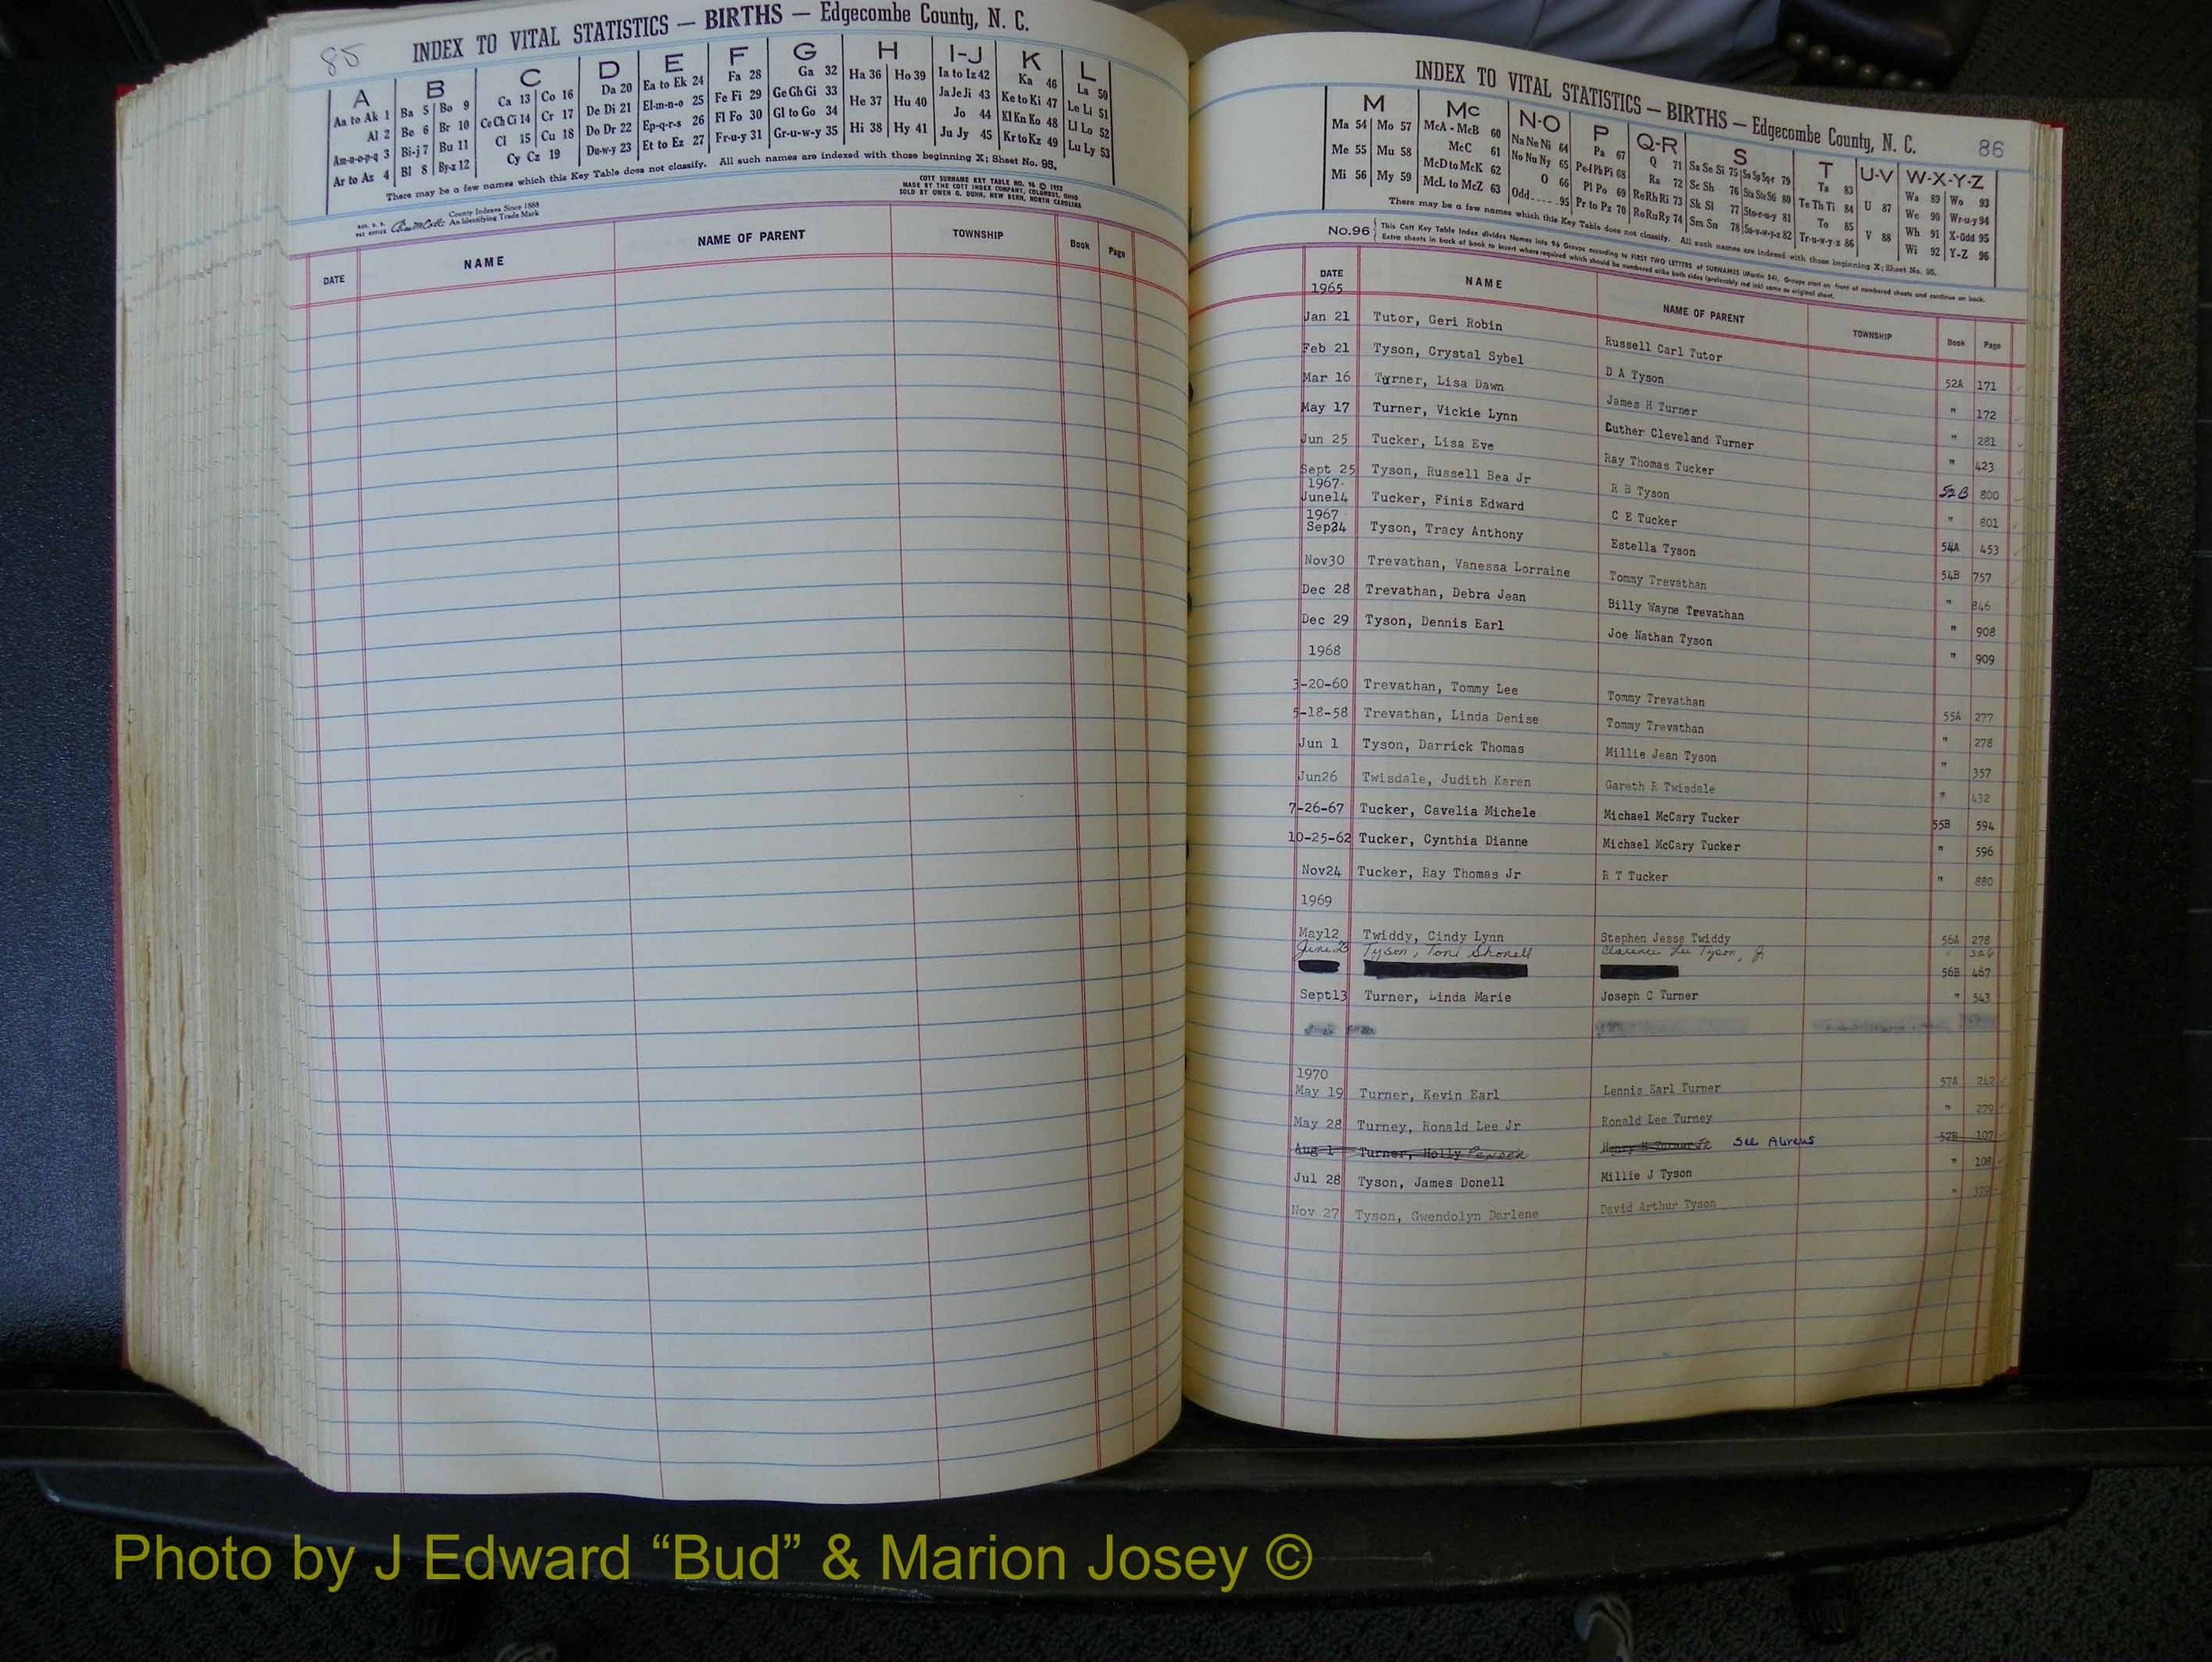 85
INDEX TO VITAL STATISTICS — BIRTHS — Edgecombe County, N. C.
A B C D E F G H I-J K L
Aa to Ak 1 Ba 5 Bo 9 Ca 13 Co 16 Da 20 Ea to Ek 24 Fa 28 Ga 32 Ha 36 Ho 39 Ia to Iz 42 Ka 46 La 50
Al 2 Be 6 Br 10 Ce Ch Ci 14 Cr 17 De Di 21 El-m-n-o 25 Fe Fi 29 Ge Gh Gi 33 He 37 Hu 40 Ja Je Ji 43 Ke to Ki 47 Le Li 51
Am-n-o-p-q 3 Bi-j 7 Bu 11 Cl 15 Cu 18 Do Dr 22 Ep-q-r-s 26 Fl Fo 30 Gl to Go 34 Hi 38 Hy 41 Jo 44 Kl Kn Ko 48 Ll Lo 52
Ar to Az 4 Bl 8 By-z 12 Cy Cz 19 Du-w-y 23 Et to Ez 27 Fr-u-y 31 Gr-u-w-y 35 Ju Jy 45 Kr to Kz 49 Lu Ly 53
There may be a few names which this Key Table does not classify. All such names are indexed with those beginning X; Sheet No. 95.
County Indexes Since 1888
An Identifying Trade Mark
COTT SURNAME KEY TABLE NO. 96 © 1953
MADE BY THE COTT INDEX COMPANY, COLUMBUS, OHIO
SOLD BY OWEN G. DUNN, NEW BERN, NORTH CAROLINA
DATE NAME NAME OF PARENT TOWNSHIP Book Page
INDEX TO VITAL STATISTICS — BIRTHS — Edgecombe County, N. C. 86
M Mc N-O P Q-R S T U-V W-X-Y-Z
Ma 54 Mo 57 McA - McB 60 Na Ne Ni 64 Pa 67 Q 71 Sa Se Si 75 So Sp Sq-r 79 Ta 83 U 87 Wa 89 Wo 93
Me 55 Mu 58 McC 61 No Nu Ny 65 Pe-f Ph Pi 68 Ra 72 Sc Sh 76 Sta Ste Sti 80 Te Th Ti 84 V 88 We 90 Wr-u-y 94
Mi 56 My 59 McD to McK 62 O 66 Pl Po 69 Re Rh Ri 73 Sk Sl 77 Sto-r-u-y 81 To 85 Wh 91 X-Odd 95
McL to McZ 63 Odd 95 Pr to Pz 70 Ro Ru Ry 74 Sm Sn 78 Su-v-w-y-z 82 Tr-u-w-y-z 86 Wi 92 Y-Z 96
There may be a few names which this Key Table does not classify. All such names are indexed with those beginning X; Sheet No. 95.
No.96 This Cott Key Table Index divides Names into 96 Groups according to FIRST TWO LETTERS of SURNAMES (Martin 54). Groups start on front of numbered sheets and continue on back.
Extra sheets in back of book to insert where required which should be numbered alike both sides (preferably red ink) same as original sheet.
DATE NAME NAME OF PARENT TOWNSHIP Book Page
1965
Jan 21 Tutor, Geri Robin Russell Carl Tutor 52A 171
Feb 21 Tyson, Crystal Sybel D A Tyson " 172
Mar 16 Turner, Lisa Dawn James H Turner " 281
May 17 Turner, Vickie Lynn Luther Cleveland Turner " 423
Jun 25 Tucker, Lisa Eve Ray Thomas Tucker 52B 800
Sept 25 Tyson, Russell Bea Jr R B Tyson " 801
1967
June14 Tucker, Finis Edward C E Tucker 54A 453
1967
Sep24 Tyson, Tracy Anthony Estella Tyson 54B 757
Nov30 Trevathan, Vanessa Lorraine Tommy Trevathan " 846
Dec 28 Trevathan, Debra Jean Billy Wayne Trevathan " 908
Dec 29 Tyson, Dennis Earl Joe Nathan Tyson " 909
1968
3-20-60 Trevathan, Tommy Lee Tommy Trevathan 55A 277
5-18-58 Trevathan, Linda Denise Tommy Trevathan " 278
Jun 1 Tyson, Darrick Thomas Millie Jean Tyson " 357
Jun26 Twisdale, Judith Karen Gareth R Twisdale " 432
7-26-67 Tucker, Cavelia Michele Michael McCary Tucker 55B 594
10-25-62 Tucker, Cynthia Dianne Michael McCary Tucker " 596
Nov24 Tucker, Ray Thomas Jr R T Tucker " 880
1969
May12 Twiddy, Cindy Lynn Stephen Jesse Twiddy 56A 278
June 23 Tyson, Toni Shonell Clarence Lee Tyson, Jr "
56B 467
Sept13 Turner, Linda Marie Joseph C Turner " 543
1970
May 19 Turner, Kevin Earl Lennis Earl Turner 57A 242
May 28 Turney, Ronald Lee Jr Ronald Lee Turney " 279
Aug 1 Turner, Holly Pender Henry H Turner Jr See Aureus 57B 107
Jul 28 Tyson, James Donell Millie J Tyson " 108
Nov 27 Tyson, Gwendolyn Darlene David Arthur Tyson "
Photo by J Edward “Bud” & Marion Josey ©